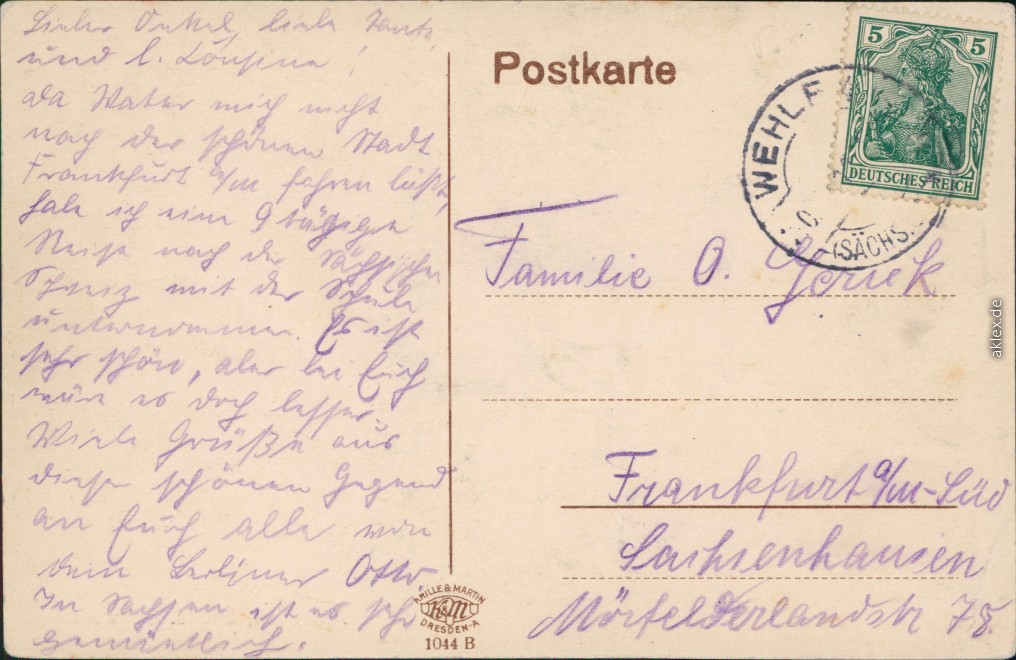 Lieber Onkel, liebe Tante,
und l. Lousine!
da Vater mich nicht
nach der schönen Stadt
Frankfurt a/m fahren läßt,
habe ich eine 9 tägige
Reise nach der Sächsischen
Schweiz mit der Schule
unternommen. Es ist
sehr schön, aber bei Euch
wäre es doch besser.
Viele Grüße aus
dieser schönen Gegend
an Euch alle von
dem Berliner Otto.
In Sachsen ist es sehr
gemütlich.
Postkarte
5 5
DEUTSCHES REICH
WEHLEN
(SÄCHS.
Familie O. Gerick
Frankfurt a/m-Süd
Sachsenhausen
Mörfelderlandstr 78.
KRILLE & MARTIN
K&M
DRESDEN-A
1044 B
aklex.de